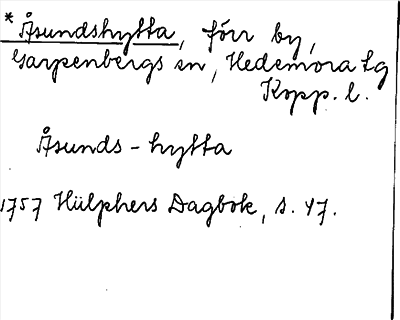 * Åsundshytta, förr by,
Garpenbergs sn, Hedemora tg
Kopp. l.
Åsunds-hytta
1757 Hülphers Dagbok, s. 47.